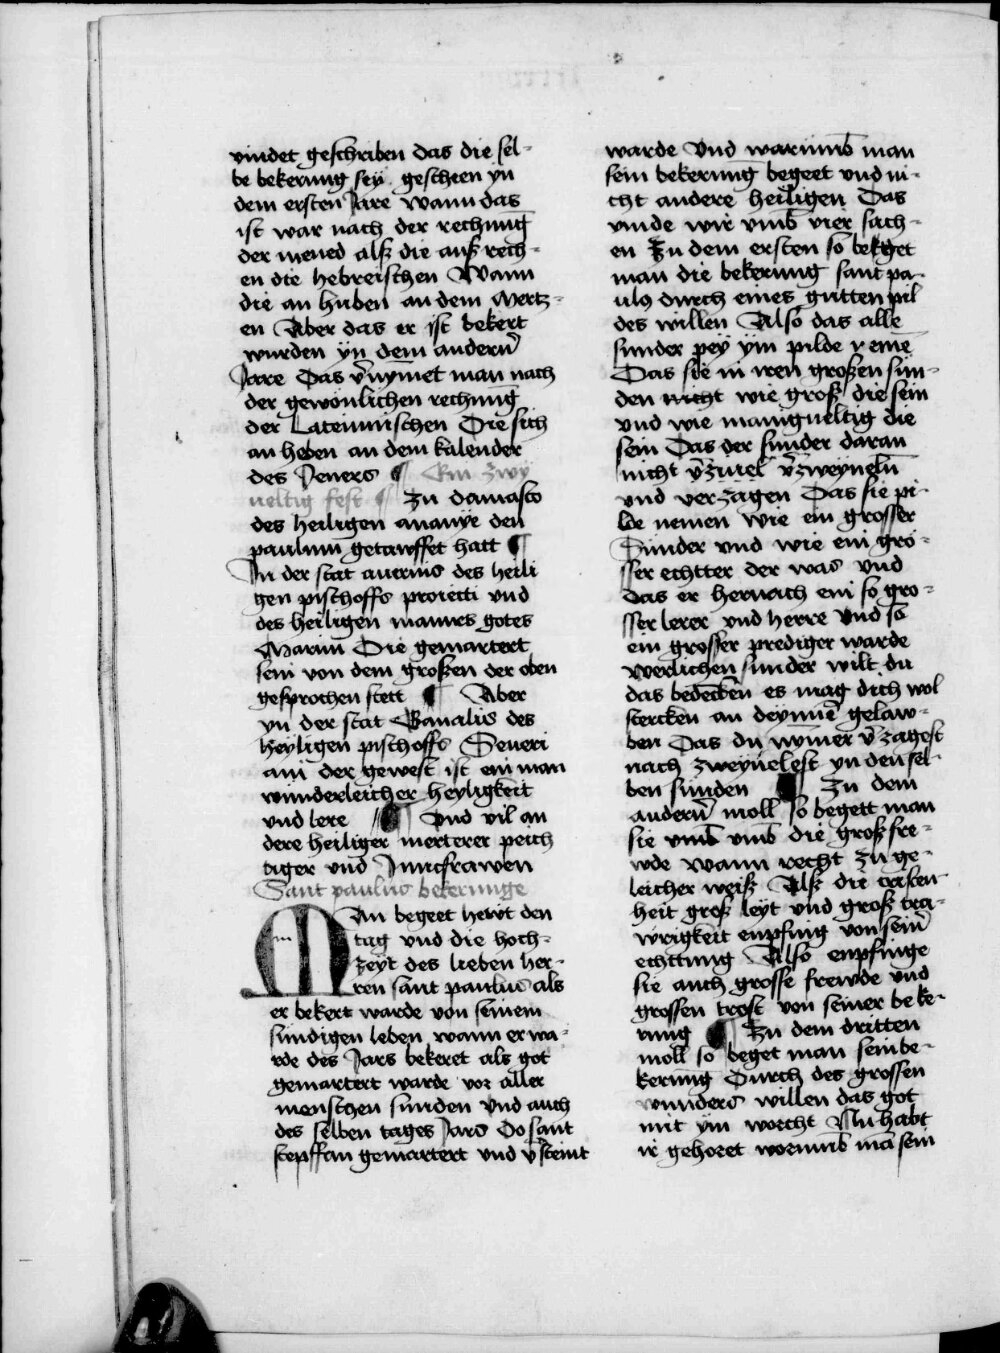 vindet geschriben das die sel-
be bekerung sey geschen yn
dem ersten Jare wann das
ist war nach der rechnūg
der moned alß die auß rech-
en die hebreischen Wann
die an huben an dem Mertz-
en Aber das er ist bekert
wurden yn dem andern̄
Jare Das v̄nymet man nach
der gewonlichen rechnūg
der Lateinnischen Die sich
an heben an dem kalender
des Jeners ¶ Ein zwy
ueltig fest ¶ Zu damasco
des heiligen ananye den
paulum getawffet hatt ¶
In der stat auernis des heili
gen pischoffs proiecti vnd
des heiligen mannes gotes
Marini Die gemartert
sein von dem großen der oben
gesprochen stett ¶ Aber
yn der stat Gaualis des
heyligen pischoffs Seueri
ani der gewest ist ein man
wunderleicher heyligkeit
vnd lere ¶ Vnd vil an
dere heiliger merterer peich
tiger vnd Junckfrawen
Sant paulus bekerunge
MAn begeet hewt den
tag vnd die hoch-
zeyt des lieben her-
ren sant paulus als
er bekert warde von seinem
sundigen leben wann er wa-
rde des Jars bekeret als got
gemartert warde vor aller
menschen sunden Vnd auch
des selben tages Jars Do sant
steffan gemartert vnd v̄steint
warde Vnd warumb man
sein bekerung begeet vnd ni-
cht andere heiligen Das
vinde wir vmb vier sach-
en Zu dem ersten so beget
man die bekerung sant pa-
uls durch eines gutten pil
des willen Also das alle
sunder pey ym pilde nemē
Das sie in iren großen sun-
den nicht wie groß die sein
vnd wie manigueltig die
sein Das der sunder daran
nicht v̄zweyueln̄
vnd verzagen Das sie pi-
lde nemen wie ein grosser
Sunder vnd wie ein gro-
sser echtter der was vnd
das er hernach ein so gro-
sser lerer vnd herre Vnd so
ein grosser prediger warde
Werlichen sunder wilt du
das bedencken es mag dich wol
stercken an deynnē gelaw-
ben Das du nȳmer v̄zagest
nach zweyuelest yn den sel-
ben sunden ¶ Zu dem
andern̄ moll so begett man
sie vmb vmb die groß fre-
wde wann recht zu ge-
leicher weiß Alß die cristen
heit groß leyt vnd groß tra-
wrigkeit enpfing von sein̄
echttung Also enpfinge
sie auch grosse frewde vnd
grossen trost von seiner beke-
rung ¶ Zu dem dritten
moll so beget man sein be-
kerung Durch des grossen
wunders willen das got
mit ym worcht Nu habt
ir gehoret worumb mā sein